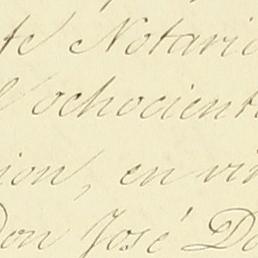 te Notario
ochocient
ion, en vir
Don José Do